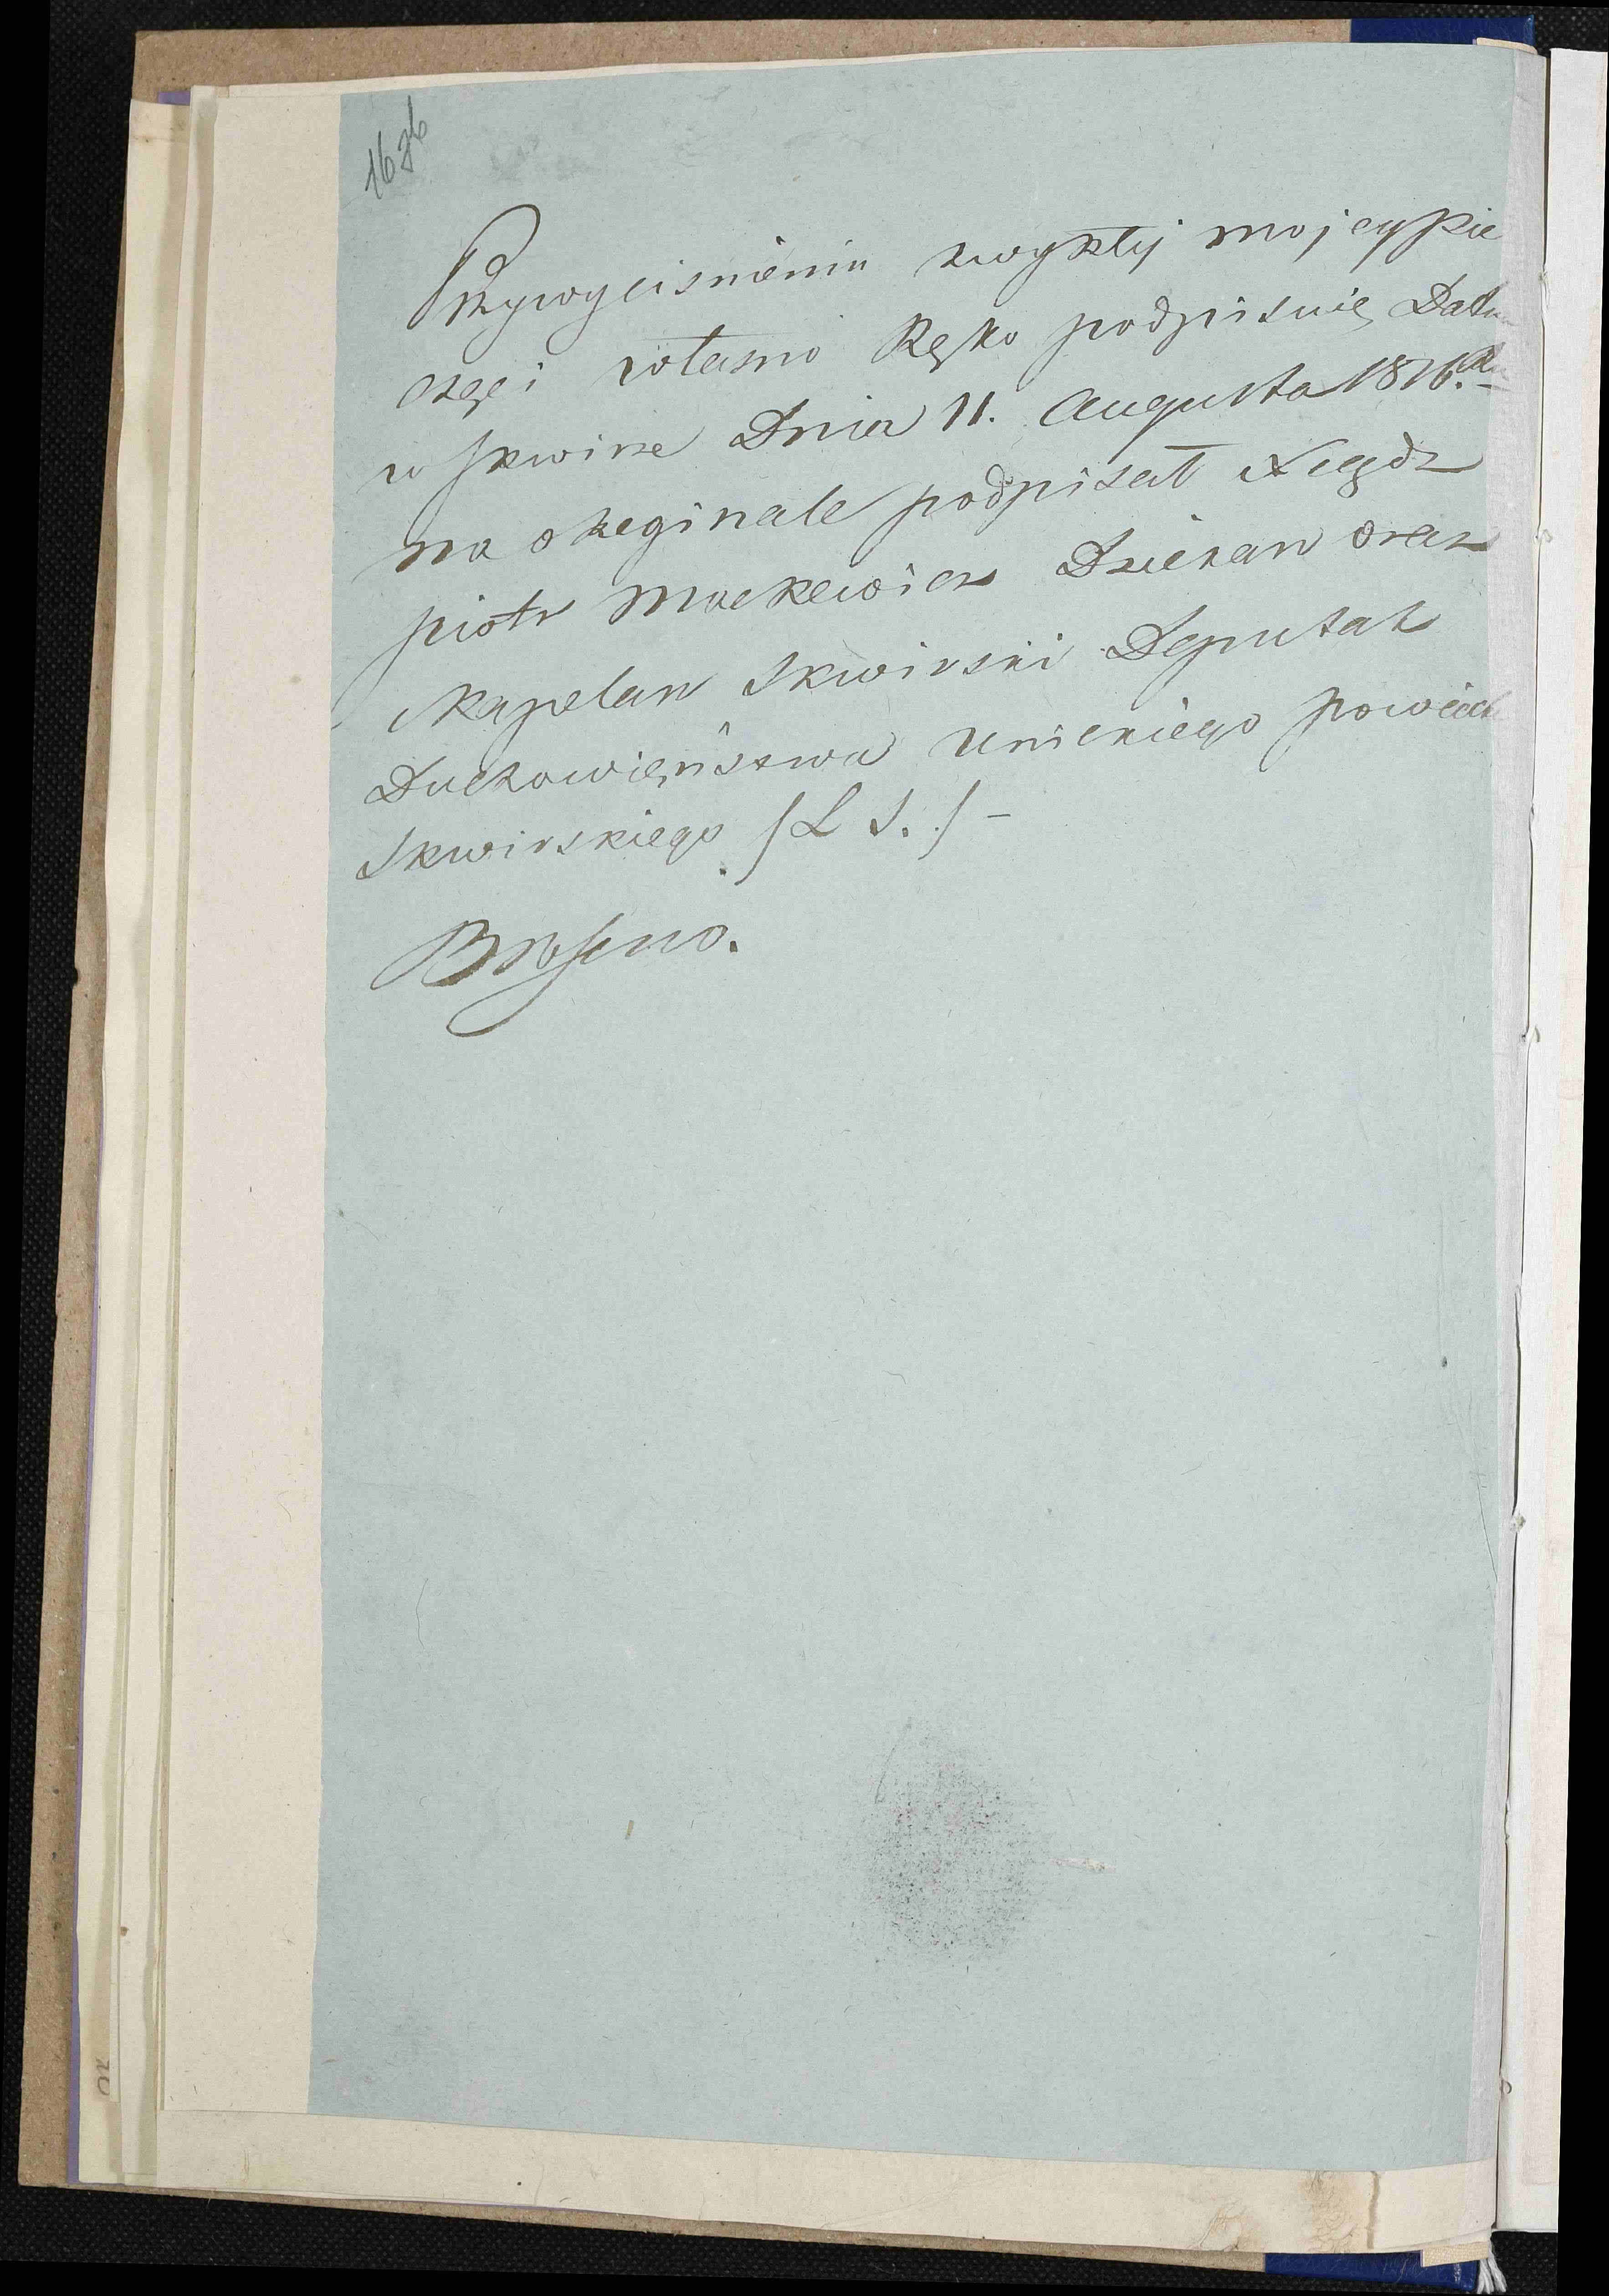 16зв
Przywyciśnieniu zwykłej mojey pie
częci własno Ręko podpisuię Datum
w skwirze Dnia 11. Augusta 1816. Ru
na oreginale podpisał Xiegdz
piotr Mackewicz Dziekan oraz
kapelan Skwirski Deputat
Duchowieństwa Unickiego powiatu
Skwirskiego /L S./ -